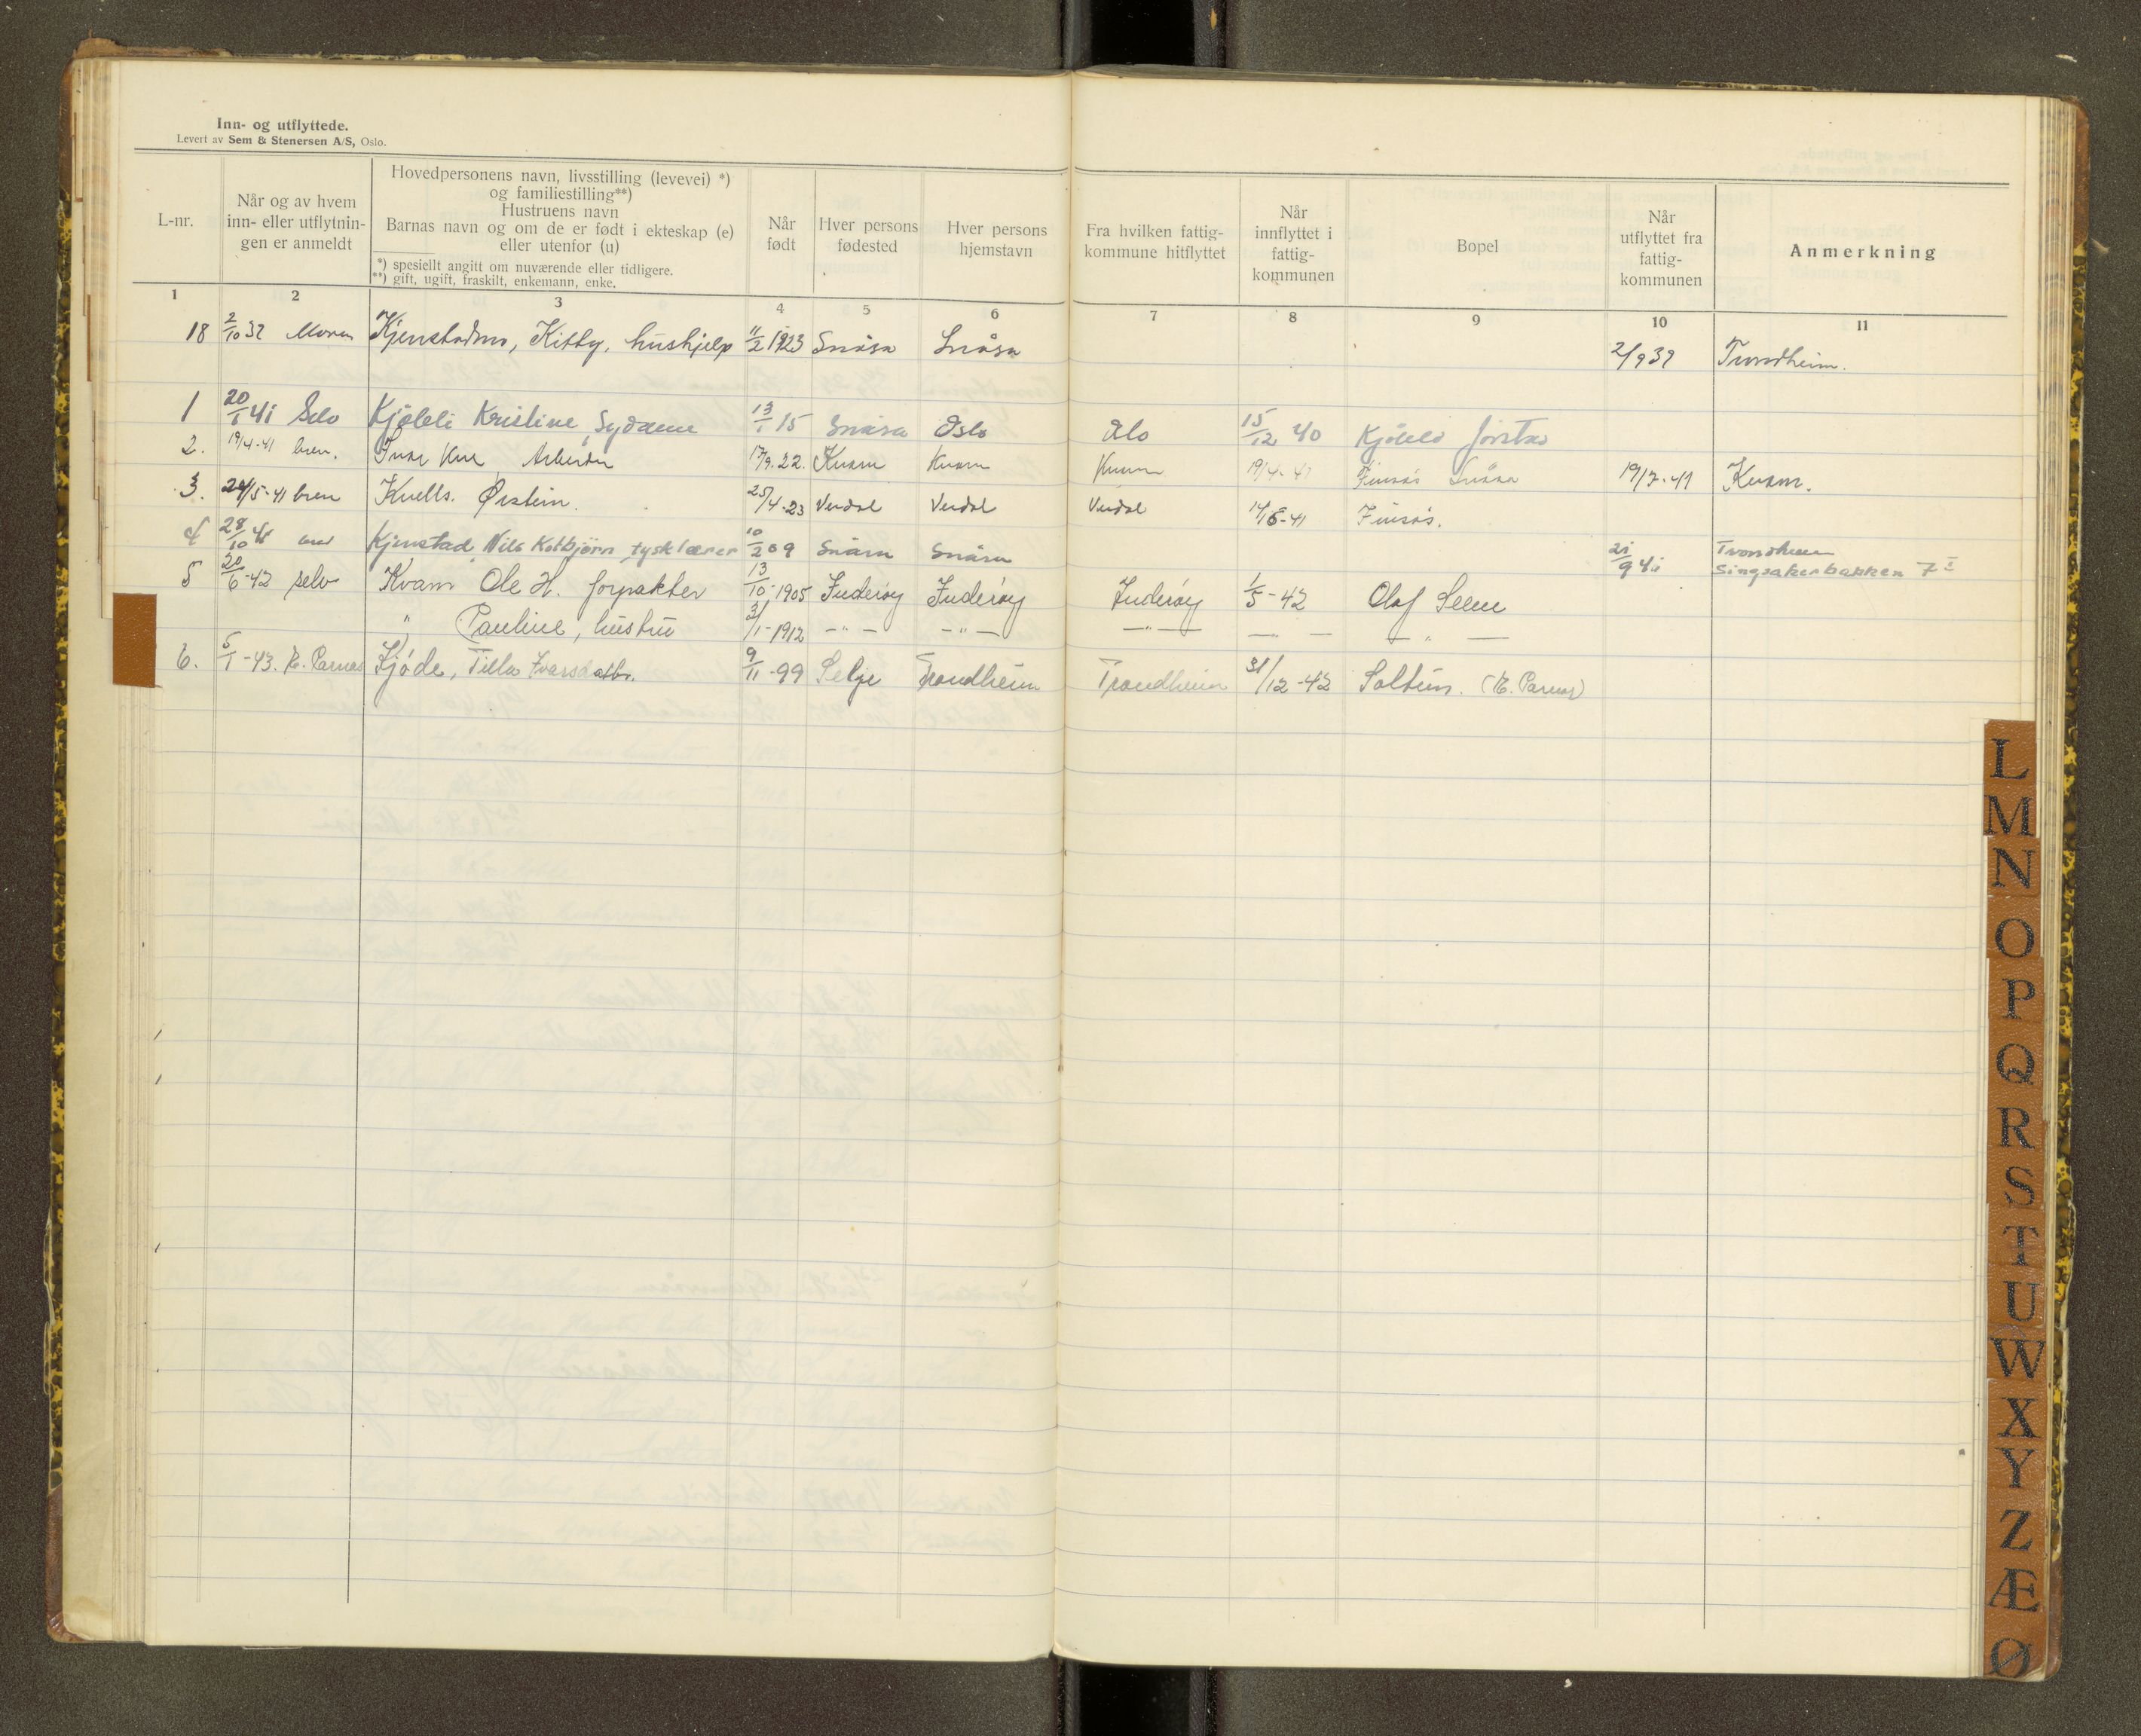 Inn- og utflyttede.
Levert av Sem & Stenersen A/S, Oslo.
L-nr.
Når og av hvem
inn- eller utflytnin-
gen er anmeldt
Hovedpersonens navn, livsstilling (levevei) *)
og familiestilling**)
Hustruens navn
Barnas navn og om de er født i ekteskap (e)
eller utenfor (u)
*) spesiellt angitt om nuværende eller tidligere.
**) gift, ugift, fraskilt, enkemann, enke.
Når
født
Hver persons
fødested
Hver persons
hjemstavn
Fra hvilken fattig-
kommune hitflyttet
Når
innflyttet i
fattig-
kommunen
Bopel
Når
utflyttet fra
fattig-
kommunen
Anmerkning
1 2 3 4 5 6 7 8 9 10 11
18 2/10 39 Moren Kjenstadmo, Kitty, hushjelp 11/2 1923 Snåsa Snåsa 2/9 39 Trondheim.
1 20/1 41 Selv Kjøleli Kristine, Sydame 13/1 15 Snåsa Oslo Oslo 15/12 40 Kjøleli Jørstad
2. 19/4-41 Ivar Arbeider 17/9.22. Kvam Kvam Kvam 19/4-41 Finsås Snåsa 19/7-41 Kvam.
3. 24/5-41 Øistein. 25/4-23 Verdal Verdal Verdal 14/5-41 Finsås.
4 28/10 41 Kjenstad, Nils Kolbjørn tysklærer 10/2 09 Snåsa Snåsa 21/9 41 Trondheim
Singsakerbakken 7 I
5 20/6-42 selv Kvam Ole H. forpakter 13/10-1905 Inderøy Inderøy Inderøy 1/5-42 Olaf Seem
" Pauline, hustru 3/1-1912 -"- -"- -"- — — — " —
6. 5/1-43. E. Parnas Kjøde, Tilla Ivarsdatter. 9/11-99 Selje Trondheim Trondheim 31/12-42 Soltun. (E. Parnas)
L
M
N
O
P
Q
R
S
T
U
W
X
Y
Z
Æ
Ø